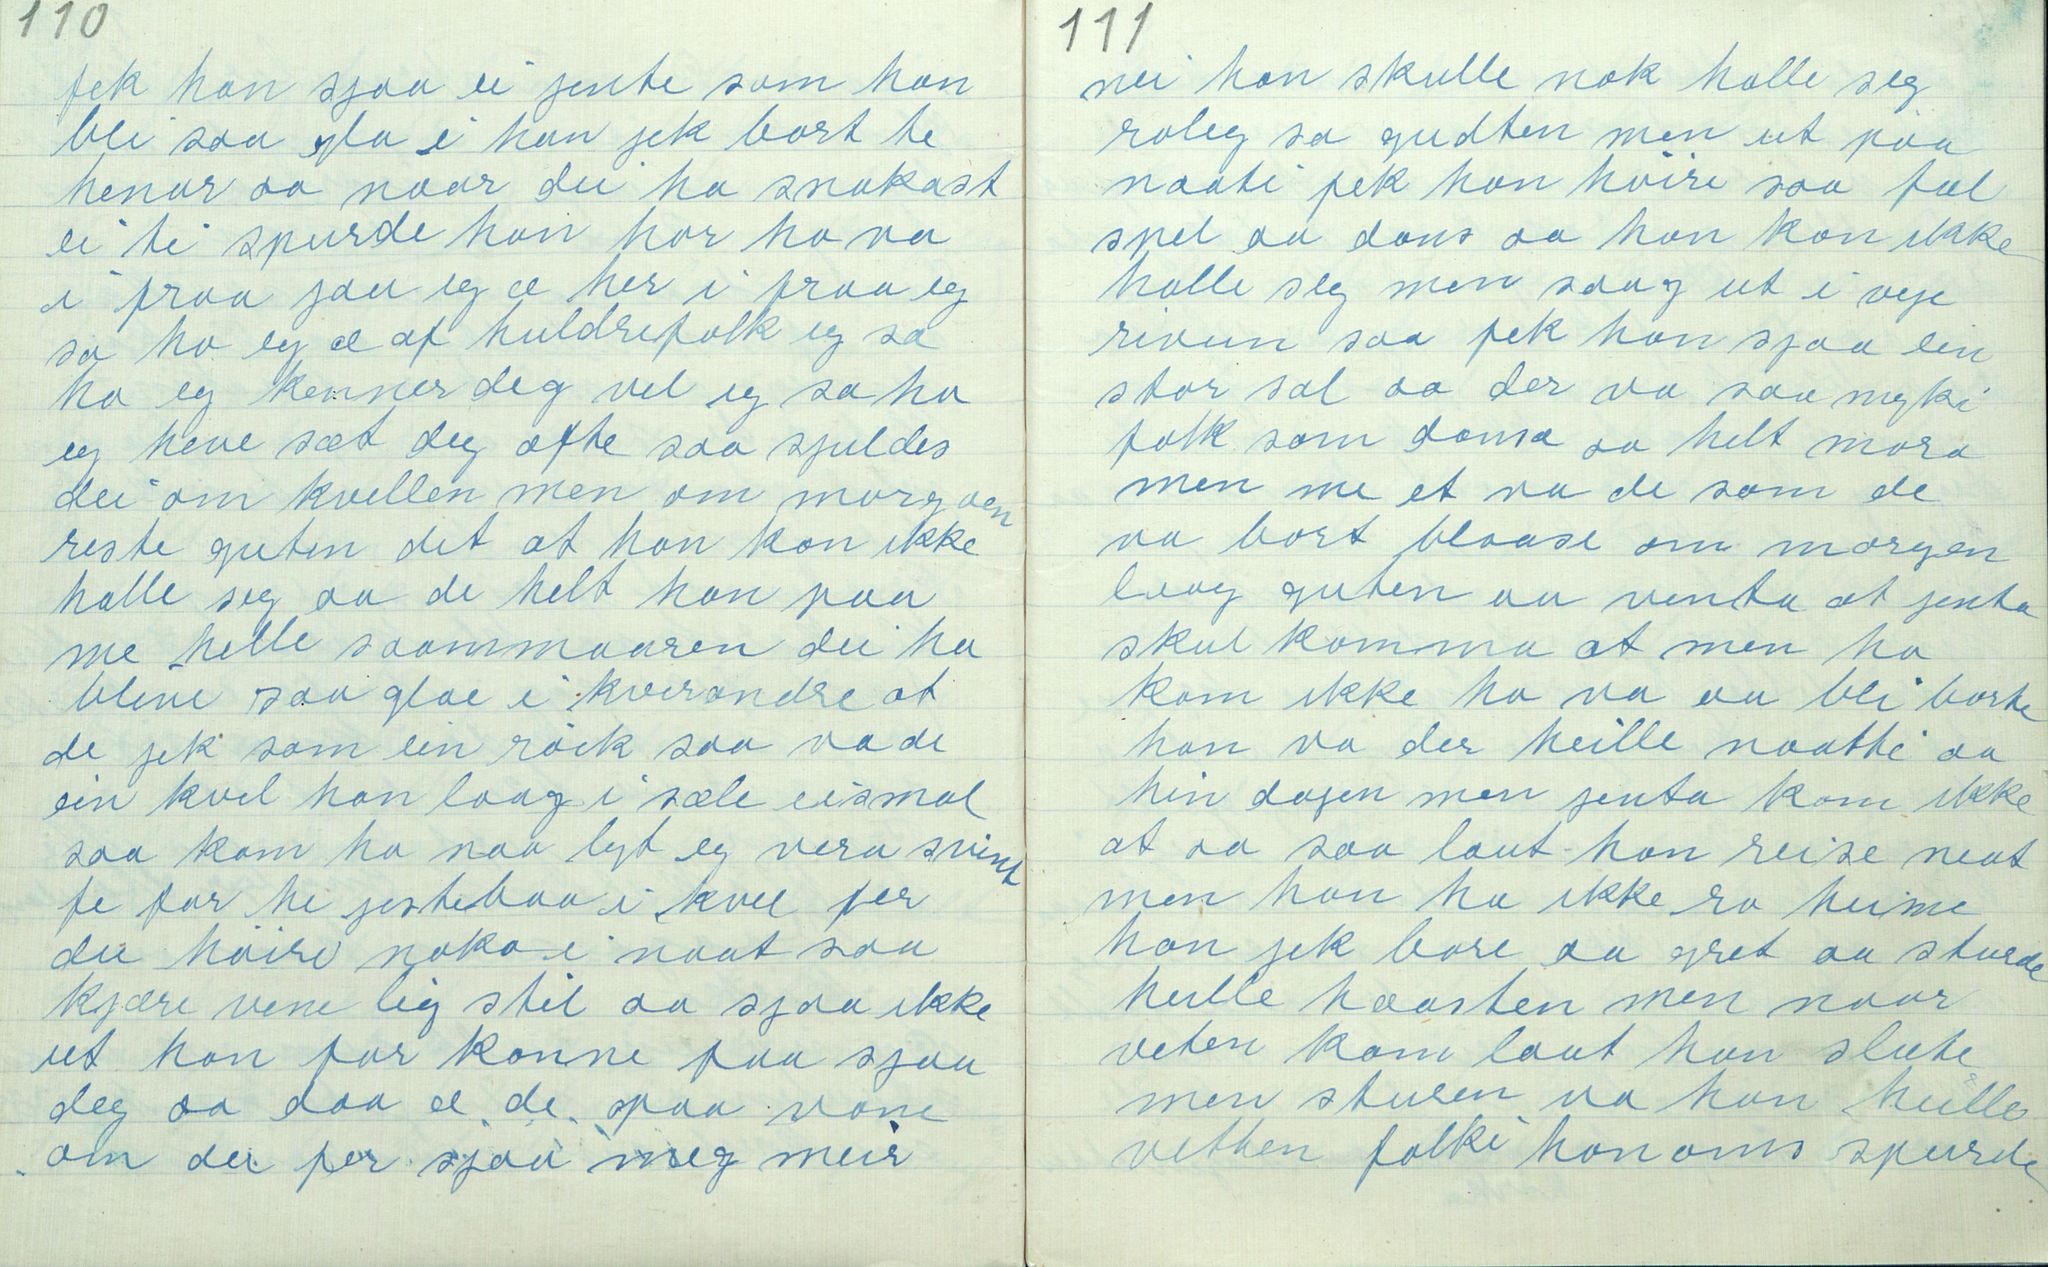 110
fek han sjaa ei jente som han
bli saa gla i han jek bort te
henar aa naar dei ha snakast
ei ti spurde han hor ho va
i fraa jau eg æ her i fraa eg
sa ho eg æ af huldrefolk eg sa
ho eg kenner deg vel eg sa ho
eg heve sæt deg ofte saa sjuldes
dei om kvellen men om morgoen
reste guten det at han kan ikke
halle seg aa de helt han paa
me helle saammaaren dei ha
blive saa glae i kverandre at
de jek som ein röik saa va de
ein kvel han laag i sæle eismal
saa kom ho naa lyt eg vera svint
fe far he jestebaa i kvel fer
du höire noko i naat saa
kjære vene lig stil aa sjaa ikke
ut han far konne faa sjaa
deg aa daa æ de spaa vone
om du fer sjaa meg meir
111
nei han skulle nok halle seg
roleg sa gudten men ut paa
naati fek han höire saa fæl
spel aa dans aa han kan ikke
halle seg men saag ut i veje
rivun saa fek han sjaa ein
stor sal aa der va saa myki
folk som dansa aa helt mora
men me et va de som de
va bort blaase om morgen
laag guten aa venta at jenta
skul komma at men ho
kom ikke ho va aa bli borte
han va der heille naatti aa
hin dagen men jenta kom ikke
at aa saa laut han reise neat
men han ha ikke ro heime
han jek bare aa gret aa sturde
heille haasten men naar
veten kom laut han slute
men sturen va han heille
vethen folki hanoms spurde